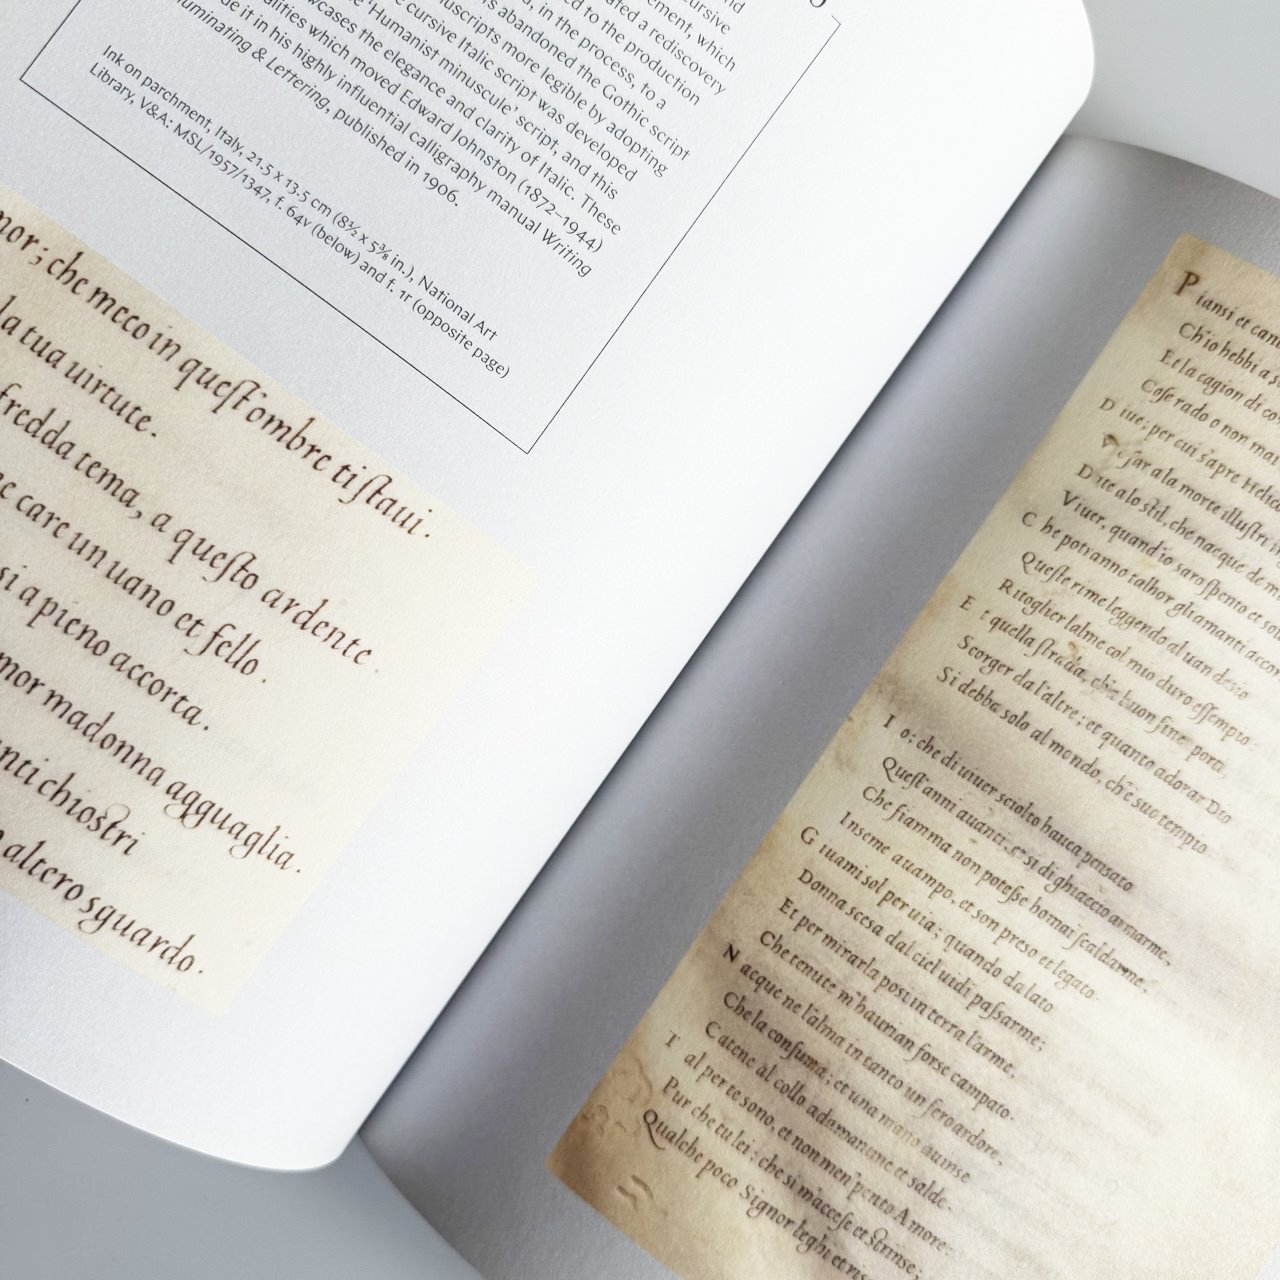 and
cursive
ement, which
ated a rediscovery
ed to the production
d, in the process, to a
is abandoned the Gothic script
uscripts more legible by adopting
e cursive Italic script was developed
e 'Humanist minuscule' script, and this
wcases the elegance and clarity of Italic. These
alities which moved Edward Johnston (1872–1944)
de it in his highly influential calligraphy manual Writing
uminating & Lettering, published in 1906.
Ink on parchment, Italy, 21.5 x 13.5 cm (8½ x 5⅜ in.), National Art
Library, V&A: MSL/1957/1347, f. 64v (below) and f. 1r (opposite page)
mor; che meco in quest'ombre ti staui.
la tua uirtute.
fredda tema, a questo ardente.
e care un uano et fello.
si a pieno accorta.
mor madonna agguaglia.
nti chiostri
altero sguardo.
Piansi et cant
Ch'io hebbi a s
Et la cagion di co
Cose rado o non mai
Diue; per cui s'apre Helic
Vsar a la morte illustri
Date a lo stil, che nacque de m
Viuer, quand'io saro spento et so
Che potranno talhor gli amanti accor
Queste rime leggendo al uan desio
Ritoglier l'alme col mio duro essempio.
Et quella strada, ch'a buon fine porti,
Scorger da l'altre; et quanto adorar Dio
Si debba solo al mondo, ch'e suo tempio.
Io; che di uiuer sciolto hauea pensato
Quest'anni auanti, e si di ghiaccio armarme,
Che fiamma non potesse homai scaldarme,
Inseme auampo, et son preso et legato.
Giuami sol per uia; quando da lato
Donna scesa dal ciel uidi passarme;
Et per mirarla posi in terra l'arme,
Che tenute m'haurian forse campato.
Nacque ne l'alma in tanto un fero ardore,
Che la consuma; et una mano auinse
Catene al collo adamantine et salde.
Tal per te sono, et non men' pento Amore:
Pur che tu lei; che si m'accese et strinse;
Qualche poco Signor leghi et ris